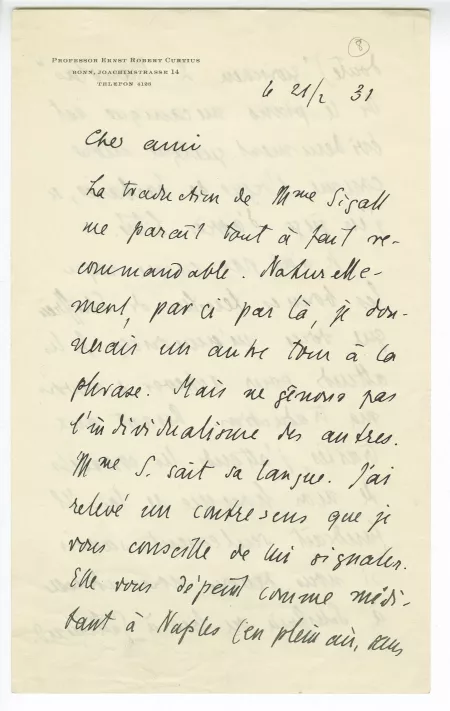 8
PROFESSOR ERNST ROBERT CURTIUS
BONN, JOACHIMSTRASSE 14
TELEFON 4186
le 21/2 31
Cher ami
La traduction de Mme Sigall
me paraît tout à fait re-
commandable. Naturelle-
ment, par ci par là, je don-
nerais un autre tour à la
phrase. Mais ne gênons pas
l'individualisme des autres.
Mme S. sait sa langue. J'ai
relevé un contresens que je
vous conseille de lui signaler.
Elle vous dépeint comme médi-
tant à Naples (en plein air, sans